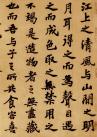 江上之清風與山間之明
月耳得之而為聲目遇
之而成色取之無禁用之
不竭是造物者之無盡藏
也而吾與子之所共食客喜